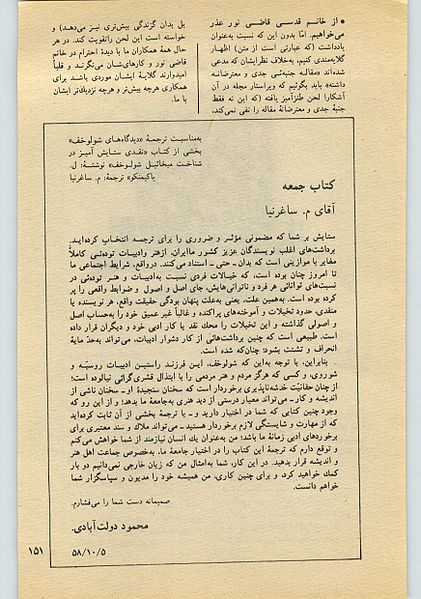 ● از خانم قدسی قاضی نور عذر
می‌خواهیم. امّا بدون این که نسبت به‌عنوان
یادداشت (که عبارتی است از متن) اظهار
گلایه‌مندی کنیم، به‌خلاف نظرایشان که مدعی
شده‌اند «مقاله جنبه‌ئی جدی و معترضانه
داشته» باید بگوئیم که ویراستار مجله در آن
آشکارا لحن طنزآمیز یافته (که این نه فقط
جنبهٔ جدی و معترضانهٔ مقاله را نفی نمی‌کند،
یل بدان گزندگی بیش‌تری نیز می‌دهد) و
خواسته است این لحن راتقویت کند. در هر
حال همهٔ همکاران ما با دیدهٔ احترام در خانم
قاضی نور و کارهای‌شان می‌نگرند و قلباً
امیدوارند گلایهٔ ایشان موردی باشد برای
همکاری هرچه بیش‌تر و هرچه نزدیک‌تر ایشان
با ما.
به‌مناسبت ترجمهٔ «دیدگاه‌های شولوخف»
بخشی از کتاب «نقدی ستایش آمیز در
شناخت میخائیل شولوخف» نوشتهٔ: ل.
یاکیمنکو» ترجمهٔ: م. ساغرنیا
کتاب جمعه
آقای م. ساغرنیا
ستایش بر شما که مضمونی مؤثر و ضروری را برای ترجمه انتخاب کرده‌اید.
برداشت‌های اغلب نویسندگان عزیز کشور ماایران، ازهنر وادبیات توده‌ئی کاملاً
مغایر با موازینی است که بدان ـ حتی ـ استناد می‌کنند. درواقع، شرایط اجتماعی ما
تا امروز چنان بوده است، که خیالات فردی نسبت به‌ادبیات و هنر توده‌ئی در
نسبت‌های توانائی هر فرد و ناتوانی‌هایش، جای اصل و اصول و ضوابط واقعی را پر
کرده بوده است. به‌همین علت، یعنی به‌علت پنهان بودگی حقیقت واقع، هر نویسنده یا
منقدی، حدود تخیلات و آموخته‌های پراکنده و غالباً غیر عمیق خود را به‌حساب اصل
و اصولی گذاشته و این تخیلات را محك نقد یا کار ادبی خود و دیگران قرار داده
است. طبیعی است که چنین برداشت‌هائی از کار دشوار ادبیات، می‌تواند به‌حد مایهٔ
انحراف و تشتت بشود؛ چنان‌که شده است.
بنابراین، با توجه به‌این که شولوخف، این فرزند راستین ادبیات روسیّه و
شوروی، و کسی که هرگز مردم و هنر مردمی را با ابتذال قشری‌گرائی نیالوده است؛
از چنان حقانیّت خدشه‌ناپذیری برخوردار است که سخنان سنجیدهٔ او ـ سخنان ناشی از
اندیشه و کار ـ می‌تواند معیار درستی از دید هنری به‌جامعهٔ ما بدهد؛ و از این رو که
وجود چنین کتابی که شما در اختیار دارید و ـ با ترجمهٔ بخشی از آن ثابت کرده‌اید
که از مهارت و شایستگی لازم برخوردار هستید ـ می‌تواند ملاك و سند معتبری برای
برخوردهای ادبی زمانهٔ ما باشد؛ من به‌عنوان یك انسان نیازمند از شما خواهش می‌کنم
و توقع دارم که ترجمهٔ این کتاب را در اختیار جامعهٔ ما، به‌خصوص جماعت اهل هنر
و اندیشه قرار بدهید. در این کار، شما به‌امثال من که زبان خارجی نمی‌دانیم دو بار
کمك خواهید کرد، و برای چنین کاری، من همیشه خود را مدیون و سپاسگزار شما
خواهم دانست.
صمیمانه دست شما را می‌فشارم.
محمود دولت‌آبادی.
۵۸/۱۰/۵
۱۵۱